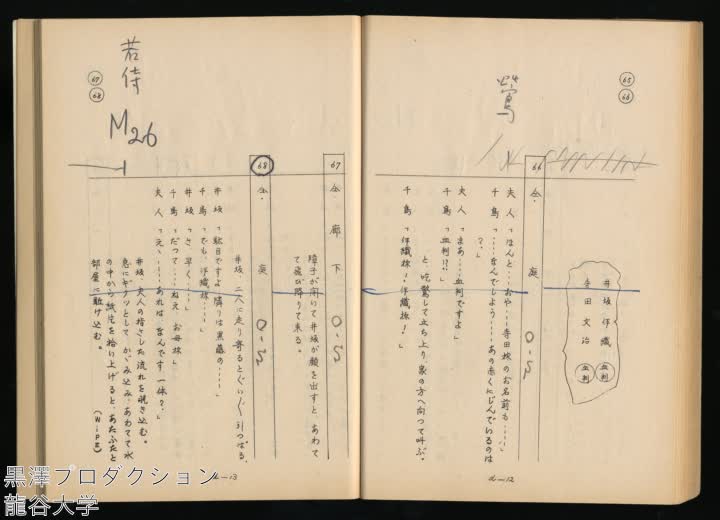 65
66
鶯
井坂伊織 血判
寺田文治 血判
66 仝・庭
夫人「ほんと…おや…寺田様のお名前も…」
千鳥「…なんでしよう…あの赤くにじんでいるのは
?」
夫人「まあ…血判ですよ」
千鳥「血判!?」
と、吃驚して立ち上り、家の方へ向つて叫ぶ。
千鳥「伊織様!伊織様!」
d—12
67
68
若侍
M26
67 仝・廊下
障子が開いて井坂が顔を出すと、あわて
て飛び降りて来る。
68 仝・庭
井坂、二人に走り寄るとぐいぐい引つぱる。
井坂「駄目ですよ 隣りは黒藤の…」
千鳥「でも、伊織様…」
井坂「さ、早く…」
千鳥「だつて…ねえ お母様」
夫人「え…あれは なんです 一体?」
井坂、夫人の指さした流れを覗き込む。
急にギクリとして、かゞみ込み、あわてて水
の中から紙片を拾い上げると、あたふたと
部屋に駈け込む。
(WIPE)
d—13
黒澤プロダクション
龍谷大学